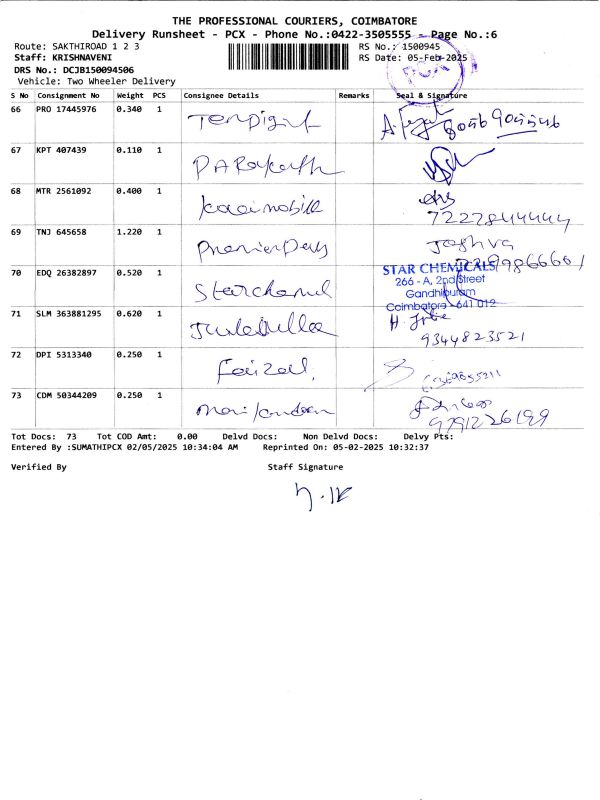 THE PROFESSIONAL COURIERS, COIMBATORE
Delivery Runsheet - PCX - Phone No.:0422-3505555 - Page No.:6
Route: SAKTHIROAD 1 2 3 RS No.: 1500945
Staff: KRISHNAVENI RS Date: 05-Feb-2025
DRS No.: DCJB150094506
Vehicle: Two Wheeler Delivery
PCX
S No Consignment No Weight PCS Consignee Details Remarks Seal & Signature
66 PRO 17445976 0.340 1
67 KPT 407439 0.110 1
68 MTR 2561092 0.400 1 kaaimobile
7227844444
69 TNJ 645658 1.220 1 Joshva
70 EDQ 26382897 0.520 1 STAR CHEMICALS
266 - A, 2nd Street
Gandhipuram
Coimbatore - 641 012
71 SLM 363881295 0.620 1
9344823521
72 DPI 5313340 0.250 1 Faizal
73 CDM 50344209 0.250 1
9791226199
Tot Docs: 73 Tot COD Amt: 0.00 Delvd Docs: Non Delvd Docs: Delvy Pts:
Entered By :SUMATHIPCX 02/05/2025 10:34:04 AM Reprinted On: 05-02-2025 10:32:37
Verified By Staff Signature